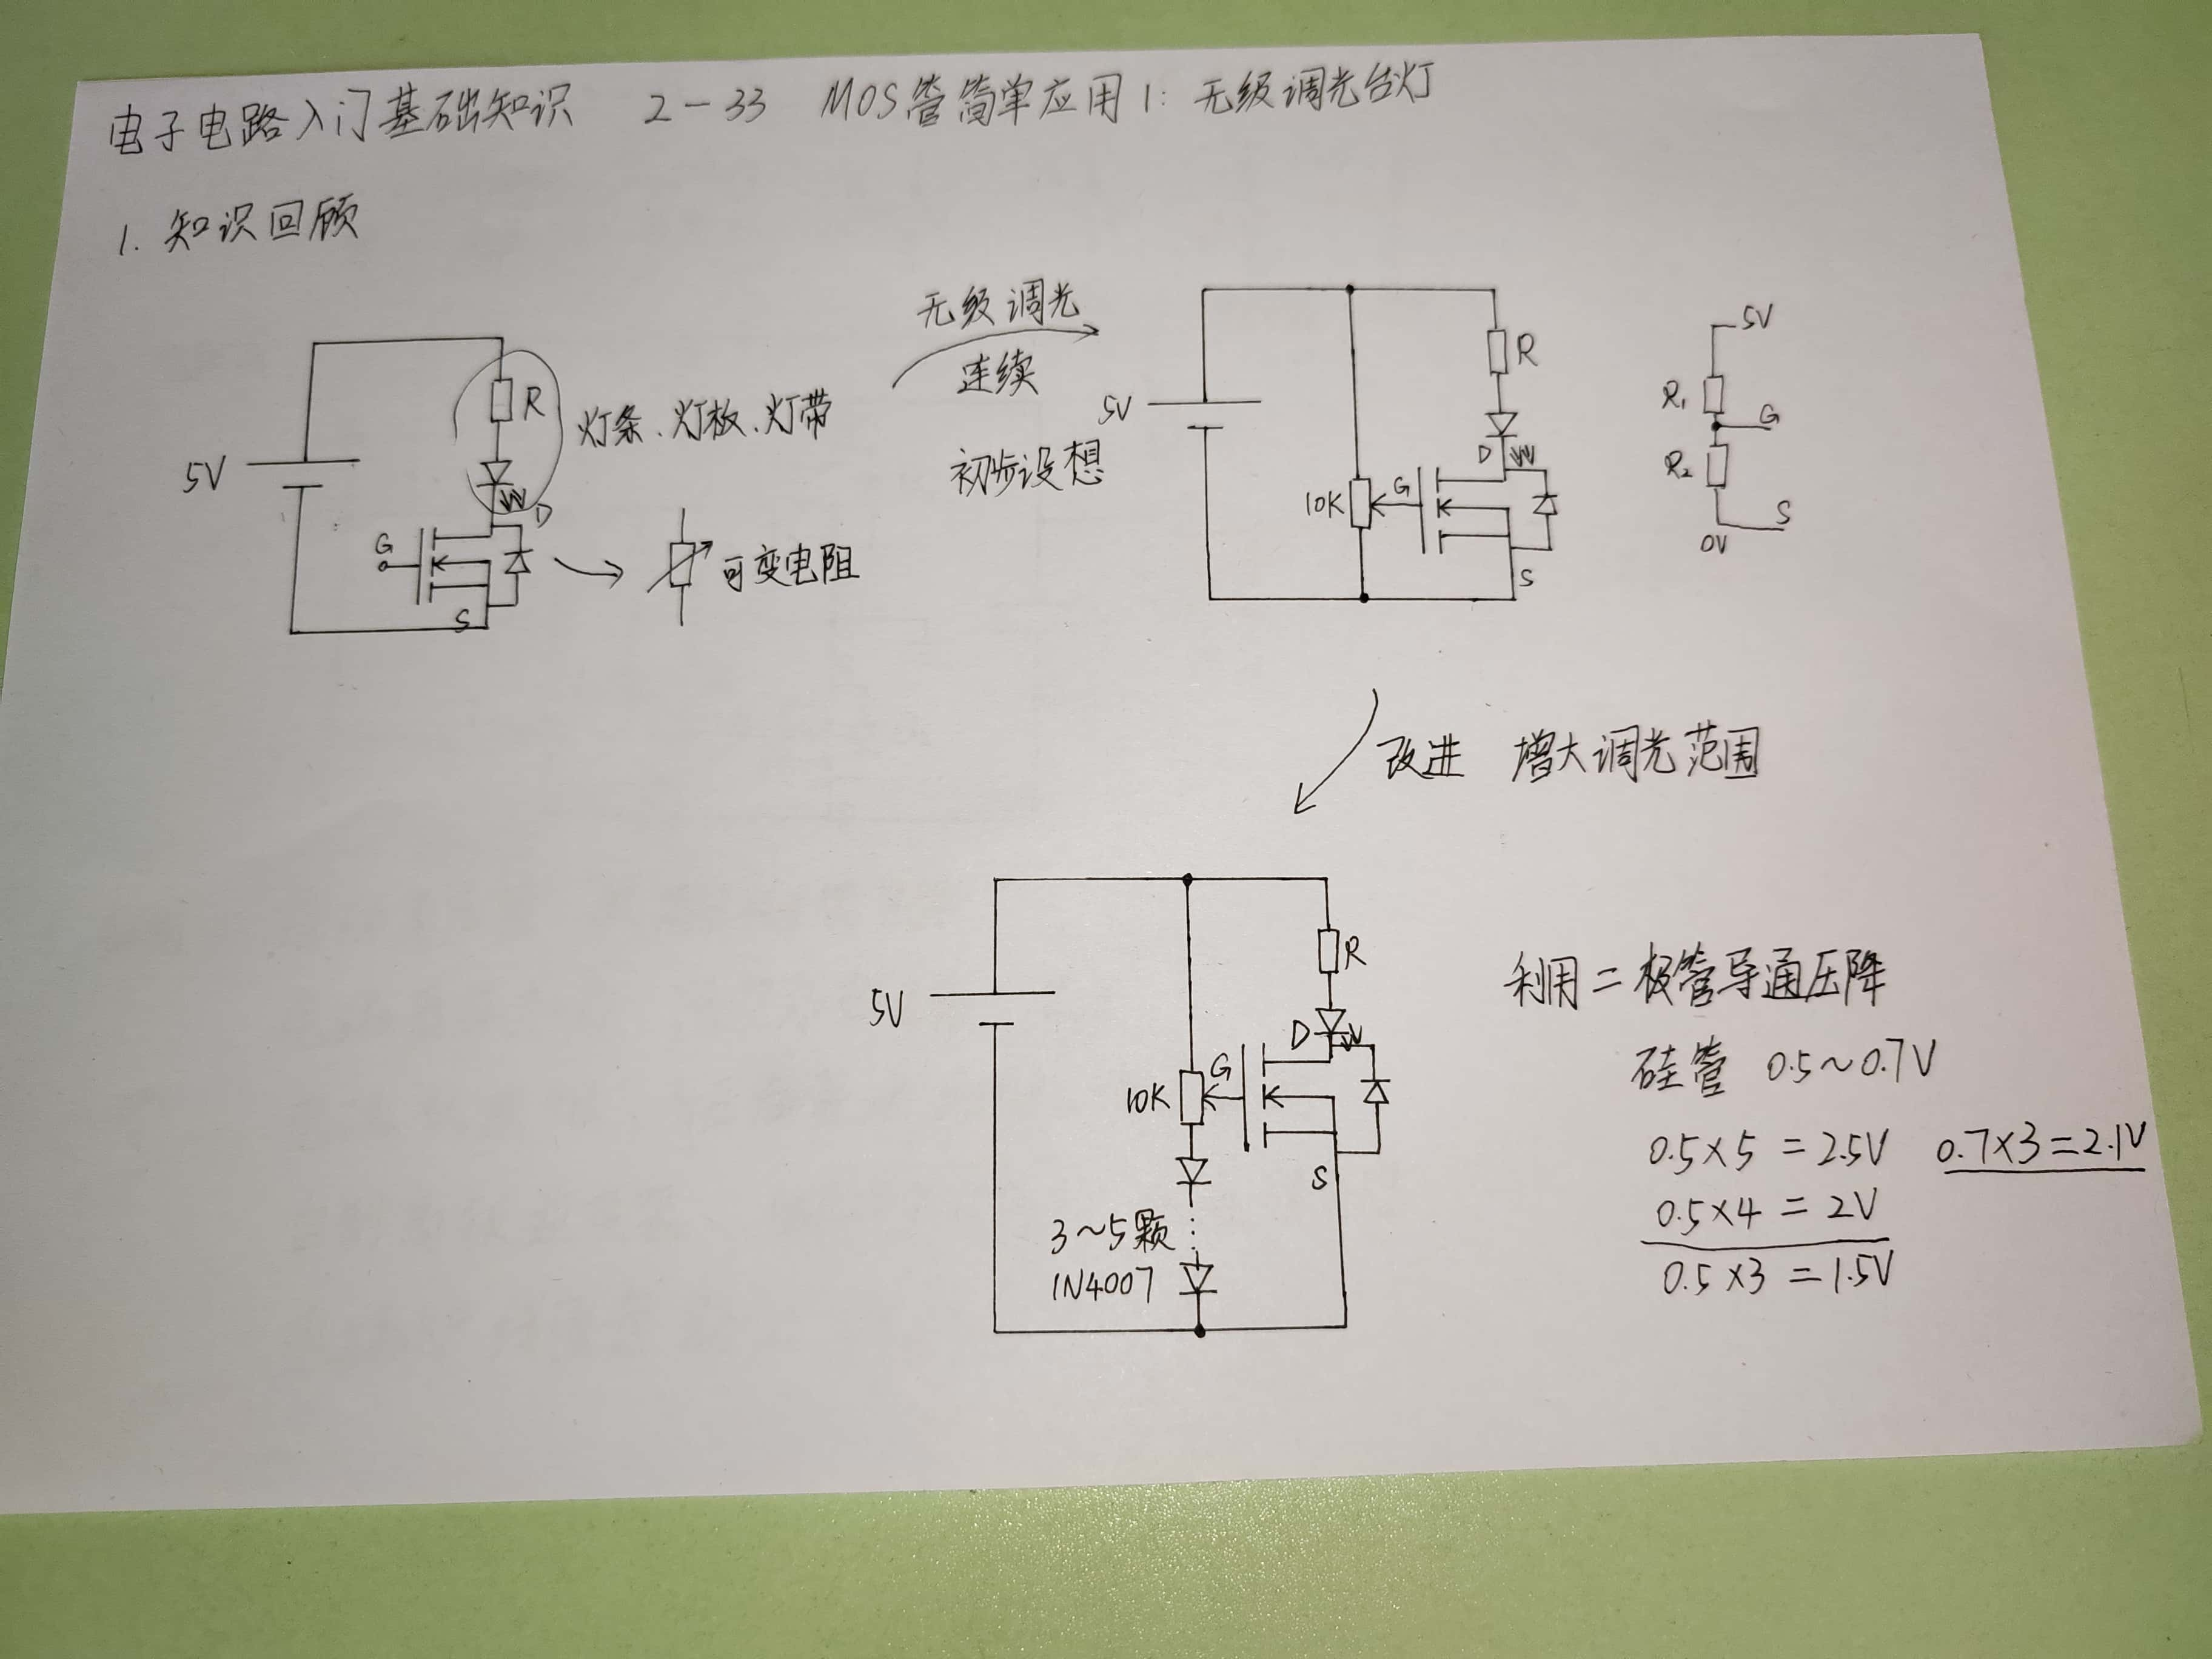 电子电路入门基础知识 2-33 MOS管简单应用1: 无级调光台灯
1. 知识回顾
5V
R
灯条、灯板、灯带
D
G
S
可变电阻
无级调光
连续
初步设想
5V
R
D
10K
G
S
5V
R₁
G
R₂
S
0V
改进 增大调光范围
5V
R
D
G
10K
S
3~5颗
1N4007
利用二极管导通压降
硅管 0.5~0.7V
0.5×5=2.5V 0.7×3=2.1V
0.5×4=2V
0.5×3=1.5V